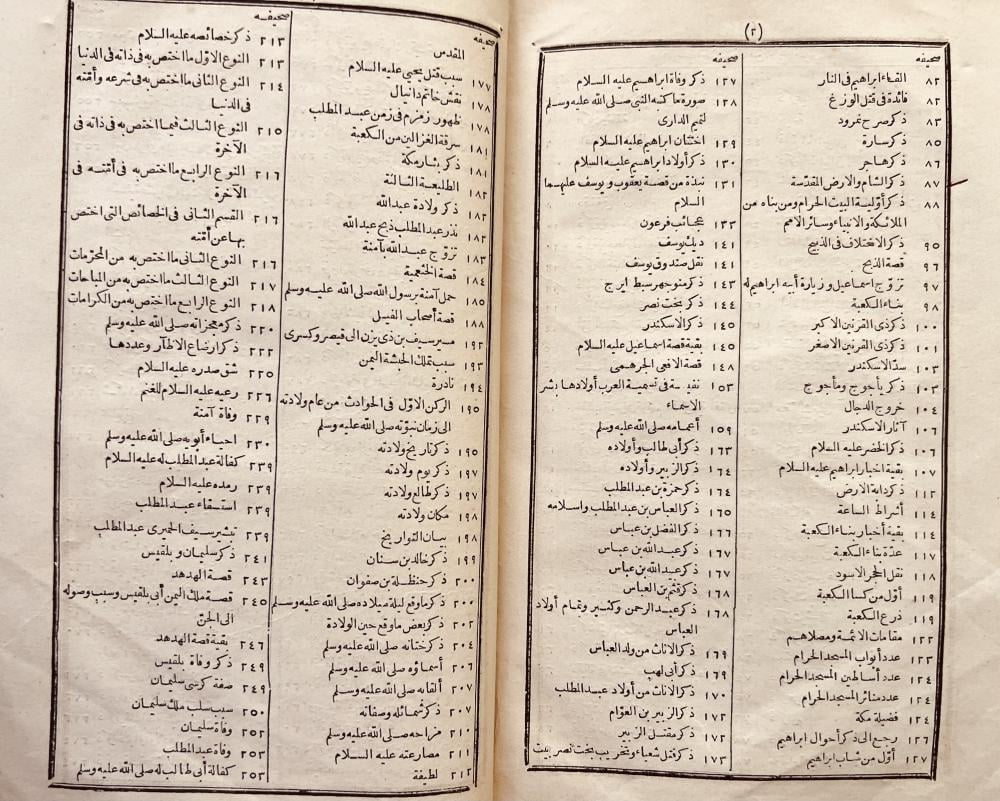 (٢)
صحيفه
٨٢ القاء ابراهيم فى النار
٨٢ فائدة فى قتل الوزغ
٨٣ ذكر صرح نمرود
٨٥ ذكر سارة
٨٦ ذكر هاجر
٨٧ ذكر الشام والارض المقدّسة
٨٨ ذكر أوّلية البيت الحرام ومن بناه من
الملائكة والانبياء وسائر الامم
٩٥ ذكر الاختلاف فى الذبيح
٩٦ قصة الذبح
٩٧ تزوّج اسماعيل وزيارة أبيه ابراهيم له
٩٨ بناء الكعبة
١٠٠ ذكر ذى القرنين الاكبر
١٠١ ذكر ذى القرنين الاصغر
١٠٣ سدّ الاسكندر
١٠٣ ذكر يأجوج ومأجوج
١٠٤ خروج الدجال
١٠٦ آثار الاسكندر
١٠٦ ذكر الخضر عليه السلام
١٠٧ بقية اخبار ابراهيم عليه السلام
١١٢ ذكر دابة الارض
١١٤ أشراط الساعة
١١٤ بقية أخبار بناء الكعبة
١١٧ عدّة بناء الكعبة
١١٨ نقل الحجر الاسود
١١٩ أوّل من كسا الكعبة
١١٩ ذرع الكعبة
١٢٢ مقامات الائمة ومصلاهم
١٢٣ عدد أبواب المسجد الحرام
١٢٤ عدد أساطين المسجد الحرام
١٢٤ عدد منائر المسجد الحرام
١٢٤ فضيلة مكة
١٢٦ رجع الى ذكر أحوال ابراهيم
١٢٧ أوّل من شاب ابراهيم
صحيفه
١٢٧ ذكر وفاة ابراهيم عليه السلام
١٢٨ صورة ما كتبه النبى صلى الله عليه وسلم
لتميم الدارى
١٢٩ اختتان ابراهيم عليه السلام
١٣٠ ذكر أولاد ابراهيم عليه السلام
١٣١ نبذة من قصة يعقوب و يوسف عليهما
السلام
١٣٣ عجائب فرعون
١٤١ ديك يوسف
١٤١ نقل صندوق يوسف
١٤٣ ذكر منوجهر سبط ايرج
١٤٤ ذكر بخت نصر
١٤٥ ذكر الاسكندر
١٤٥ بقية قصة اسماعيل عليه السلام
١٤٨ قصة الافعى الجرهمى
١٥٣ نفيسة فى تسمية العرب أولادها بشر
الاسماء
١٥٩ أعمامه صلى الله عليه وسلم
١٦٣ ذكر أبى طالب وأولاده
١٦٤ ذكر الزبير وأولاده
١٦٤ ذكر حمزة بن عبد المطلب
١٦٥ ذكر العباس بن عبد المطلب واسلامه
١٦٦ ذكر الفضل بن عباس
١٦٧ ذكر عبد الله بن عباس
١٦٧ ذكر عبيد الله بن عباس
١٦٨ ذكر قثم بن العباس
١٦٨ ذكر عبد الرحمن وكثير وتمام أولاد
العباس
١٦٩ ذكر الاناث من ولد العباس
١٦٩ ذكر أبى لهب
١٧٠ ذكر الاناث من أولاد عبد المطلب
١٧٢ ذكر الزبير بن العوّام
١٧٢ ذكر مقتل الزبير
١٧٣ ذكر قتل شعياء وتخريب بخت نصر بيت
صحيفه
المقدس
١٧٧ سبب قتل يحيى عليه السلام
١٧٨ نقش خاتم دانيال
١٧٨ ظهور زمزم فى زمن عبد المطلب
١٨١ سرقة الغزالين من الكعبة
١٨١ ذكر بئار مكة
١٨٢ الطليعة الثالثة
١٨٢ ذكر ولادة عبد الله
١٨٢ نذر عبد المطلب ذبح عبد الله
١٨٣ تزوّج عبد الله بآمنة
١٨٤ قصة الخثعمية
١٨٥ حمل آمنة برسول الله صلى الله عليه وسلم
١٨٨ قصة أصحاب الفيل
١٩٢ مسير سيف بن ذى يزن الى قيصر وكسرى
١٩٣ سبب تملك الحبشة اليمن
١٩٤ نادرة
١٩٥ الركن الاوّل فى الحوادث من عام ولادته
الى زمان نبوّته صلى الله عليه وسلم
١٩٥ ذكر تاريخ ولادته
١٩٧ ذكر يوم ولادته
١٩٧ ذكر طالع ولادته
١٩٨ مكان ولادته
١٩٨ بيان التواريخ
١٩٩ ذكر خالد بن سنان
٢٠٠ ذكر حنظلة بن صفوان
٢٠٠ ذكر ما وقع ليلة ميلاده صلى الله عليه وسلم
٢٠٢ ذكر بعض ما وقع حين الولادة
٢٠٤ ذكر ختانه صلى الله عليه وسلم
٢٠٦ أسماؤه صلى الله عليه وسلم
٢٠٧ ألقابه صلى الله عليه وسلم
٢٠٧ ذكر شمائله وصفاته
٢١٠ مزاحه صلى الله عليه وسلم
٢١١ مصارعته عليه السلام
٢١٢ لطيفة
صحيفه
٢١٣ ذكر خصائصه عليه السلام
٢١٣ النوع الاوّل ما اختص به فى ذاته فى الدنيا
٢١٤ النوع الثانى ما اختص به فى شرعه وأمّته
فى الدنيا
٢١٥ النوع الثالث فيما اختص به فى ذاته فى
الآخرة
٢١٦ النوع الرابع ما اختص به فى أمّته فى
الآخرة
٢١٦ القسم الثانى فى الخصائص التى اختص
بها عن أمّته
٢١٦ النوع الثانى ما اختص به من المحرّمات
٢١٧ النوع الثالث ما اختص به من المباحات
٢١٨ النوع الرابع ما اختص به من الكرامات
٢٢٠ ذكر معجزاته صلى الله عليه وسلم
٢٢٢ ذكر ارضاع الاظآر وعددها
٢٢٥ شق صدره عليه السلام
٢٢٦ رعيه عليه السلام للغنم
٢٢٩ وفاة آمنة
٢٣٠ احياء أبويه صلى الله عليه وسلم
٢٣٩ كفالة عبد المطلب له عليه السلام
٢٣٩ رمده عليه السلام
٢٣٩ استسقاء عبد المطلب
٢٣٩ تبشير سيف الحميرى عبد المطلب
٢٤١ ذكر سليمان و بلقيس
٢٤٣ قصة الهدهد
٢٤٥ قصة ملك اليمن أبى بلقيس وسبب وصوله
الى الجنّ
٢٤٦ بقية قصة الهدهد
٢٤٩ ذكر وفاة بلقيس
٢٤٩ صفة كرسى سليمان
٢٥٠ سبب سلب ملك سليمان
٢٥٢ وفاة سليمان
٢٥٣ وفاة عبد المطلب
٢٥٣ كفالة أبى طالب له صلى الله عليه وسلم